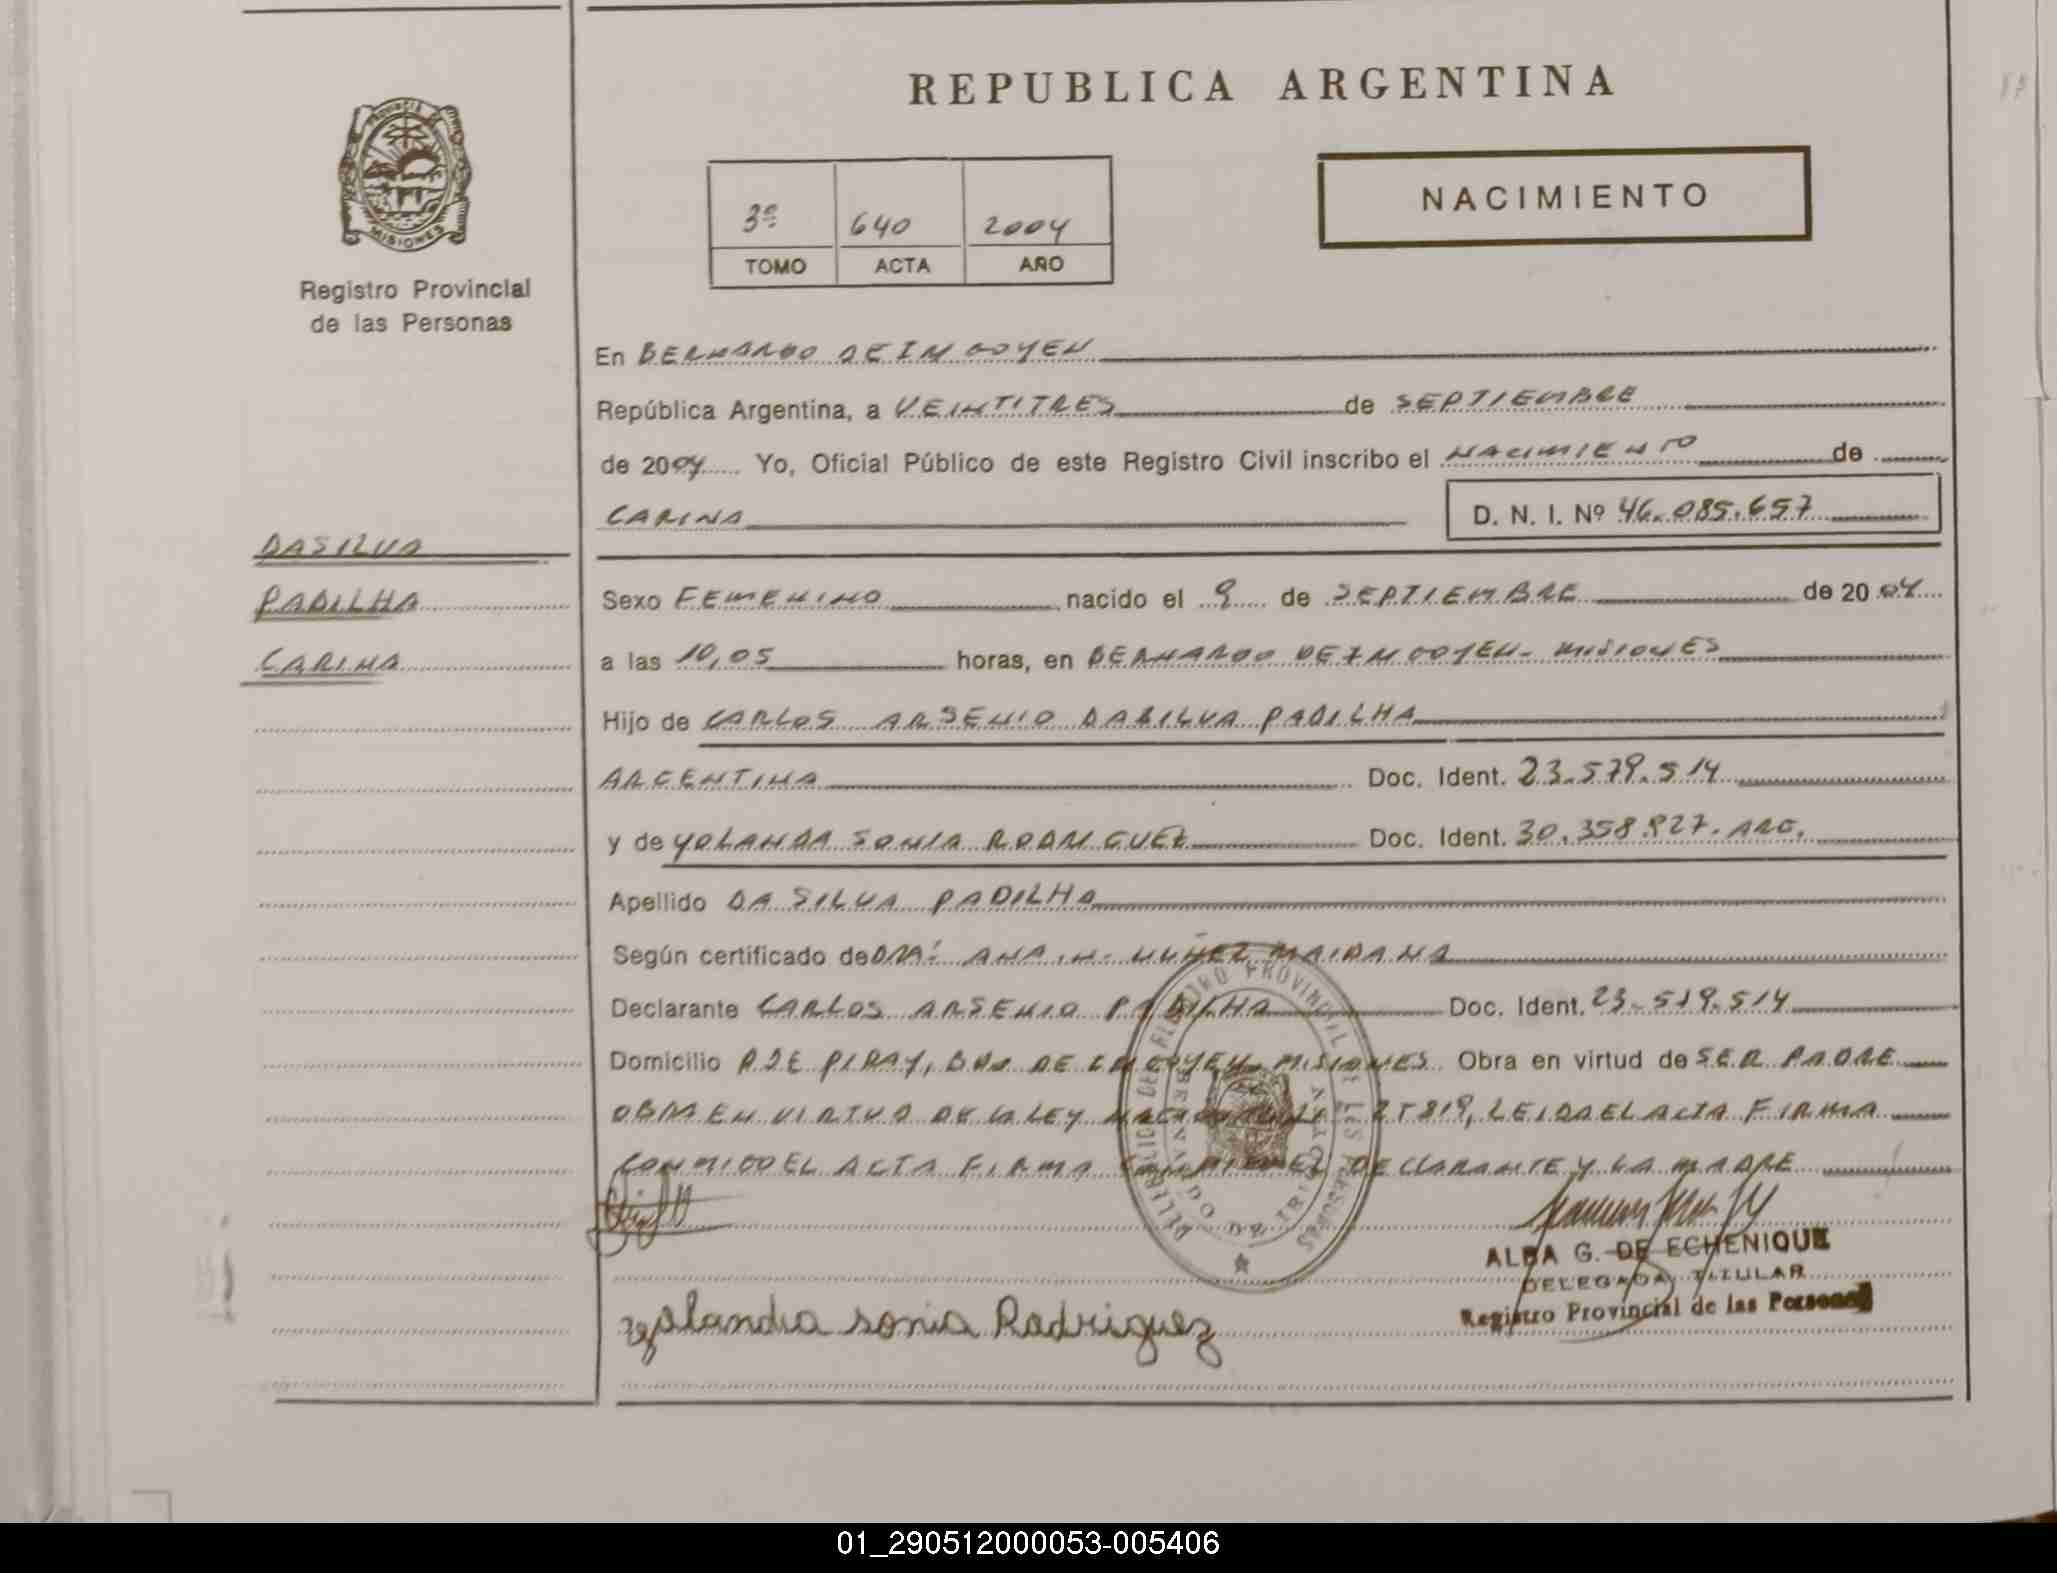 REPUBLICA ARGENTINA
NACIMIENTO
3º 640 2004
TOMO ACTA AÑO
PROVINCIA DE MISIONES
Registro Provincial
de las Personas
En BERNARDO DE IRIGOYEN
República Argentina, a VEINTITRES de SEPTIEMBRE
de 2004 Yo, Oficial Público de este Registro Civil inscribo el NACIMIENTO de
CARINA D. N. I. Nº 46.085.657
DASILVA
PADILHA
CARINA
Sexo FEMENINO nacido el 9 de SEPTIEMBRE de 2004
a las 10,05 horas, en BERNARDO DE IRIGOYEN- MISIONES
Hijo de CARLOS ARSENIO DASILVA PADILHA
ARGENTINA Doc. Ident. 23.579.514
y de YOLANDA SONIA RODRIGUEZ Doc. Ident. 30.358.927. ARG.
Apellido DA SILVA PADILHA
Según certificado de DRA: ANA NUÑEZ MAIDANA
Declarante CARLOS ARSENIO PADILHA Doc. Ident. 23.579.514
Domicilio PJE PIRAY, BDO DE IRIGOYEN- MISIONES. Obra en virtud de SER PADRE
OBRA EN VIRTUD DE LA LEY NACIONAL LEIDA EL ACTA FIRMA
CONMIGO EL ACTA FIRMA EL DECLARANTE Y LA MADRE
REGISTRO PROVINCIAL DE LAS PERSONAS
BERNARDO DE IRIGOYEN
ALBA G. DE ECHENIQUE
DELEGADA TITULAR
Registro Provincial de las Personas
Yolanda sonia Rodriguez
01_290512000053-005406